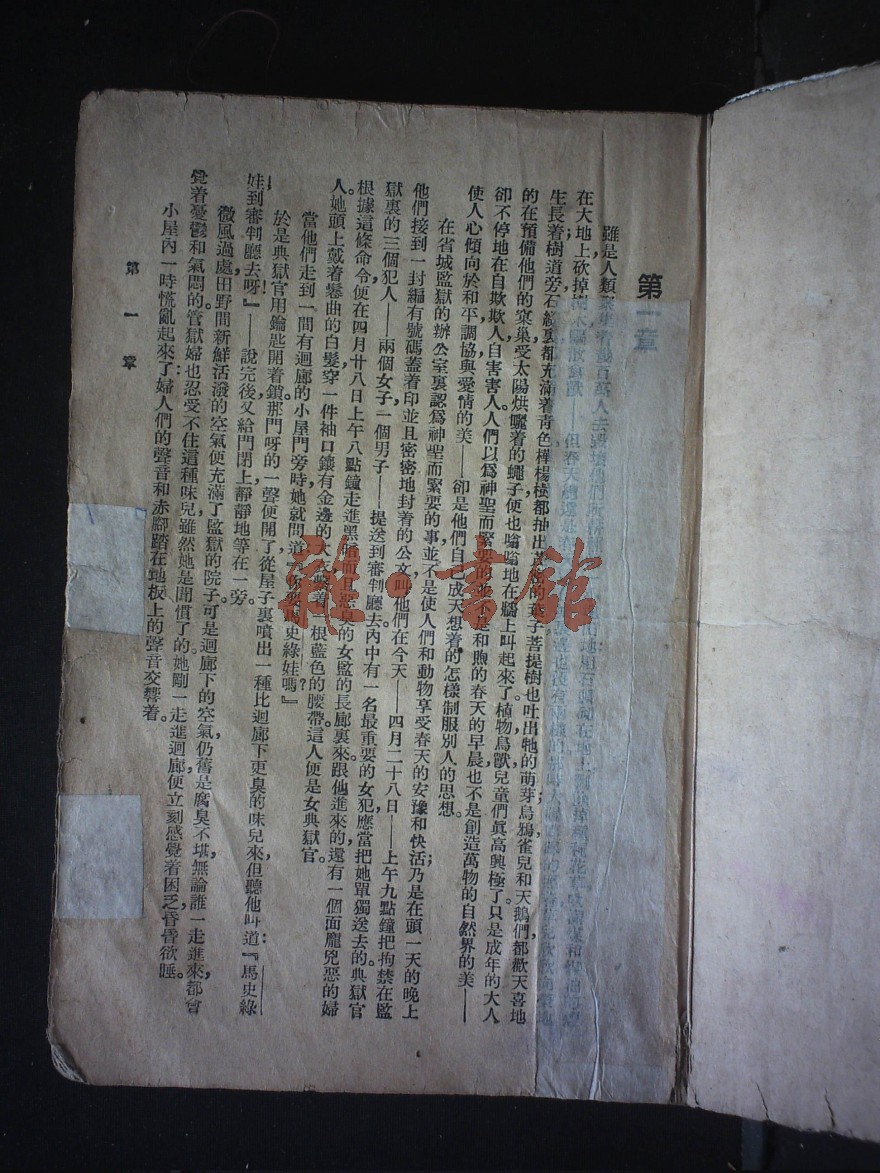 第一章
雖是人類
在大地上砍掉樹木
生長着樹道旁石縫裏都充滿着青色樺楊樹都抽出
的在預備他們的窠巢受太陽烘曬着的蠅子便也嗡嗡地在牆上叫起來了植物鳥獸兒童們眞高興極了只是成年的大人
卻不停地在自欺欺人自害害人人們以爲神聖而緊要的並不是和煦的春天的早晨也不是創造萬物的自然界的美——
使人心傾向於和平調協與愛情的美——卻是他們自己成天想着的怎樣制服別人的思想。
在省城監獄的辦公室裏認爲神聖而緊要的事並不是使人們和動物享受春天的安豫和快活乃是在頭一天的晚上
他們接到一封編有號碼蓋着印並且密密地封着的公文叫他們在今天——四月二十八日——上午九點鐘把拘禁在監
獄裏的三個犯人——兩個女子一個男子——提送到審判廳去內中有一名最重要的女犯應當把她單獨送去的典獄官
根據這條命令便在四月廿八日上午八點鐘走進黑暗而且惡臭的女監的長廊裏來跟他進來的還有一個面龐兇惡的婦
人她頭上戴着鬈曲的白髮穿一件袖口鑲有金邊的大衣繫着一根藍色的腰帶這人便是女典獄官。
當他們走到一間有迴廊的小屋門旁時她就問道『你要馬史綠娃嗎？』
於是典獄官用鑰匙開着鎖那門呀的一聲便開了從屋子裏噴出一種比迴廊下更臭的味兒來但聽他叫道：『馬史綠
娃！到審判廳去呀！』——說完後又給門閉上靜靜地等在一旁。
微風過處田野間新鮮活潑的空氣便充滿了監獄的院子。可是迴廊下的空氣仍舊是腐臭不堪無論誰一走進來都會
覺着憂鬱和氣悶的。管獄婦也忍受不住這種味兒雖然她是聞慣了的她剛一走進迴廊便立刻感覺着困乏昏昏欲睡。
小屋內一時慌亂起來了：婦人們的聲音和赤腳踏在地板上的聲音交響着。
第一章
雜·書館